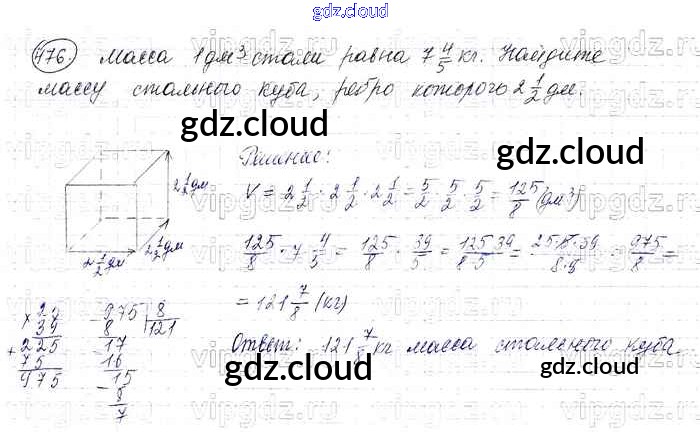 gdz.cloud
476. Масса 1 дм³ стали равна 7 4/5 кг. Найдите
массу стального куба, ребро которого 2 1/2 дм.
gdz.cloud gdz.cloud
Решение:
2 1/2 дм
V = 2 1/2 · 2 1/2 · 2 1/2 = 5/2 · 5/2 · 5/2 = 125/8 (дм³)
2 1/2 дм
2 1/2 дм
125/8 · 7 4/5 = 125/8 · 39/5 = 125·39/8·5 = 25·5·39/8·5 = 975/8 =
= 121 7/8 (кг)
× 25
39
+ 225
75
975
975 | 8
8 | 121
17
16
15
8
7
Ответ: 121 7/8 кг масса стального куба.
gdz.cloud gdz.cloud